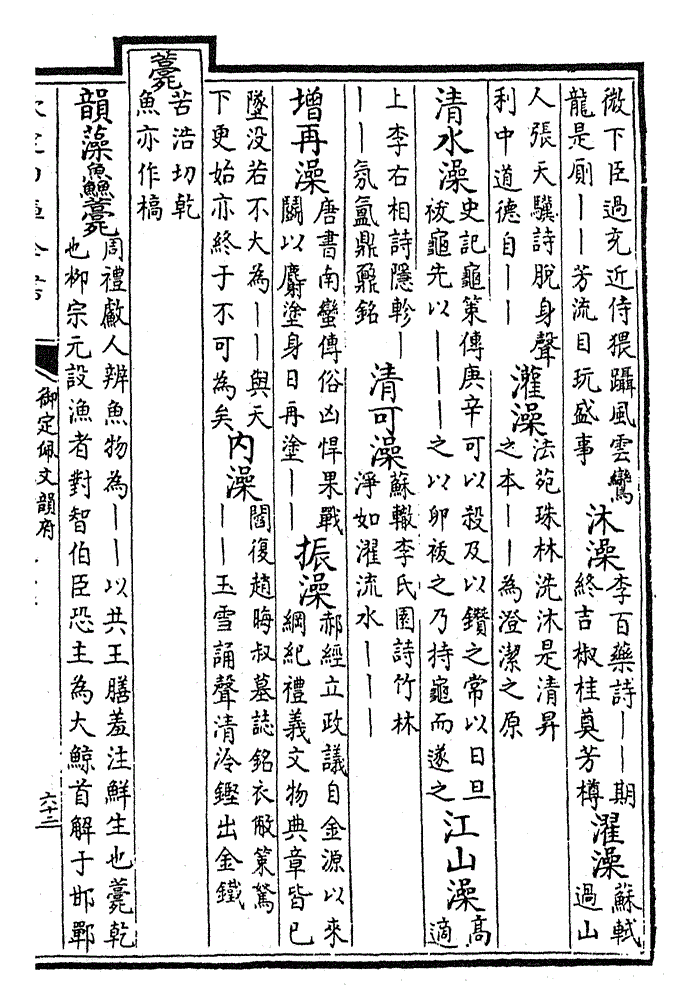 微下臣過充近侍猥躡風雲鸞
龍是廁——芳流目玩盛事
沐澡
李百藥詩——期
終吉椒桂奠芳樽
濯澡
蘇軾
過山
人張天驥詩脫身聲
利中道德自——
灌澡
法苑珠林洗沐是清昇
之本——為澄潔之原
清水澡
史記龜策傳庚辛可以殺及以鑽之常以日旦
祓龜先以———之以卵祓之乃持龜而遂之
江山澡
高
適
上李右相詩隱軫—
——氛氳鼎鼐銘
清可澡
蘇轍李氏園詩竹林
淨如濯流水———
增再澡
唐書南蠻傳俗凶悍果戰
鬬以麝塗身日再塗——
振澡
郝經立政議自金源以來
綱紀禮義文物典章皆已
墜没若不大為——與天
下更始亦終于不可為矣
内澡
閻復趙晦叔墓誌銘衣敝策駑
——玉雪誦聲清泠鏗出金鐵
薧
苦浩切乾
魚亦作槁
韻藻
魚鱻薧
周禮䱷人辨魚物為——以共王膳羞注鮮生也薧乾
也柳宗元設漁者對智伯臣恐主為大鯨首解于邯鄲
御定佩文韻府
六十二